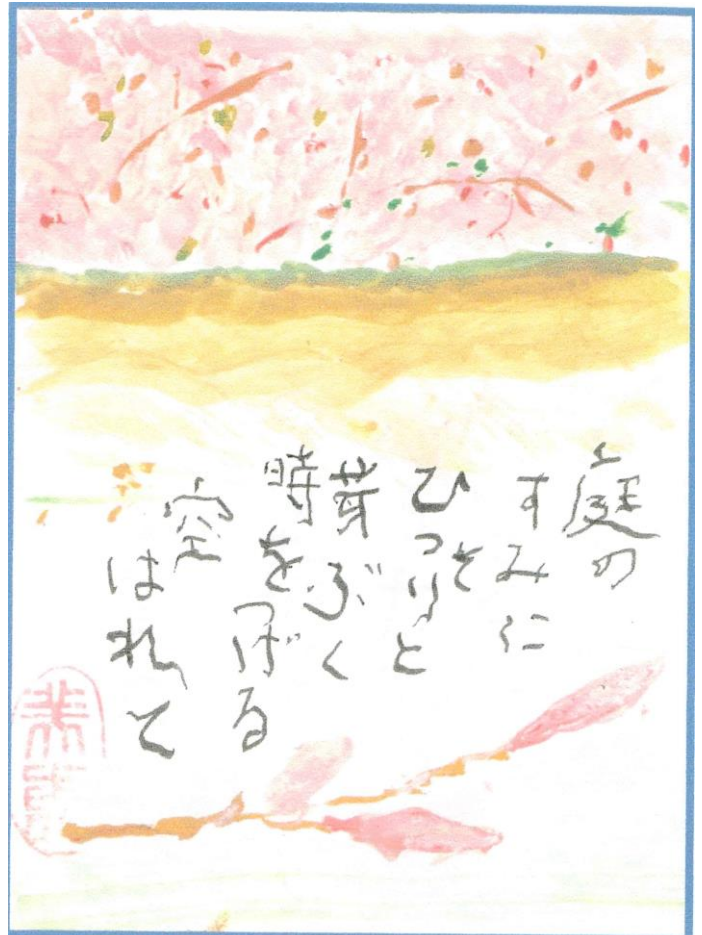 庭の
すみに
ひっそりと
芽ぶく
時を
つげる
空
はれて